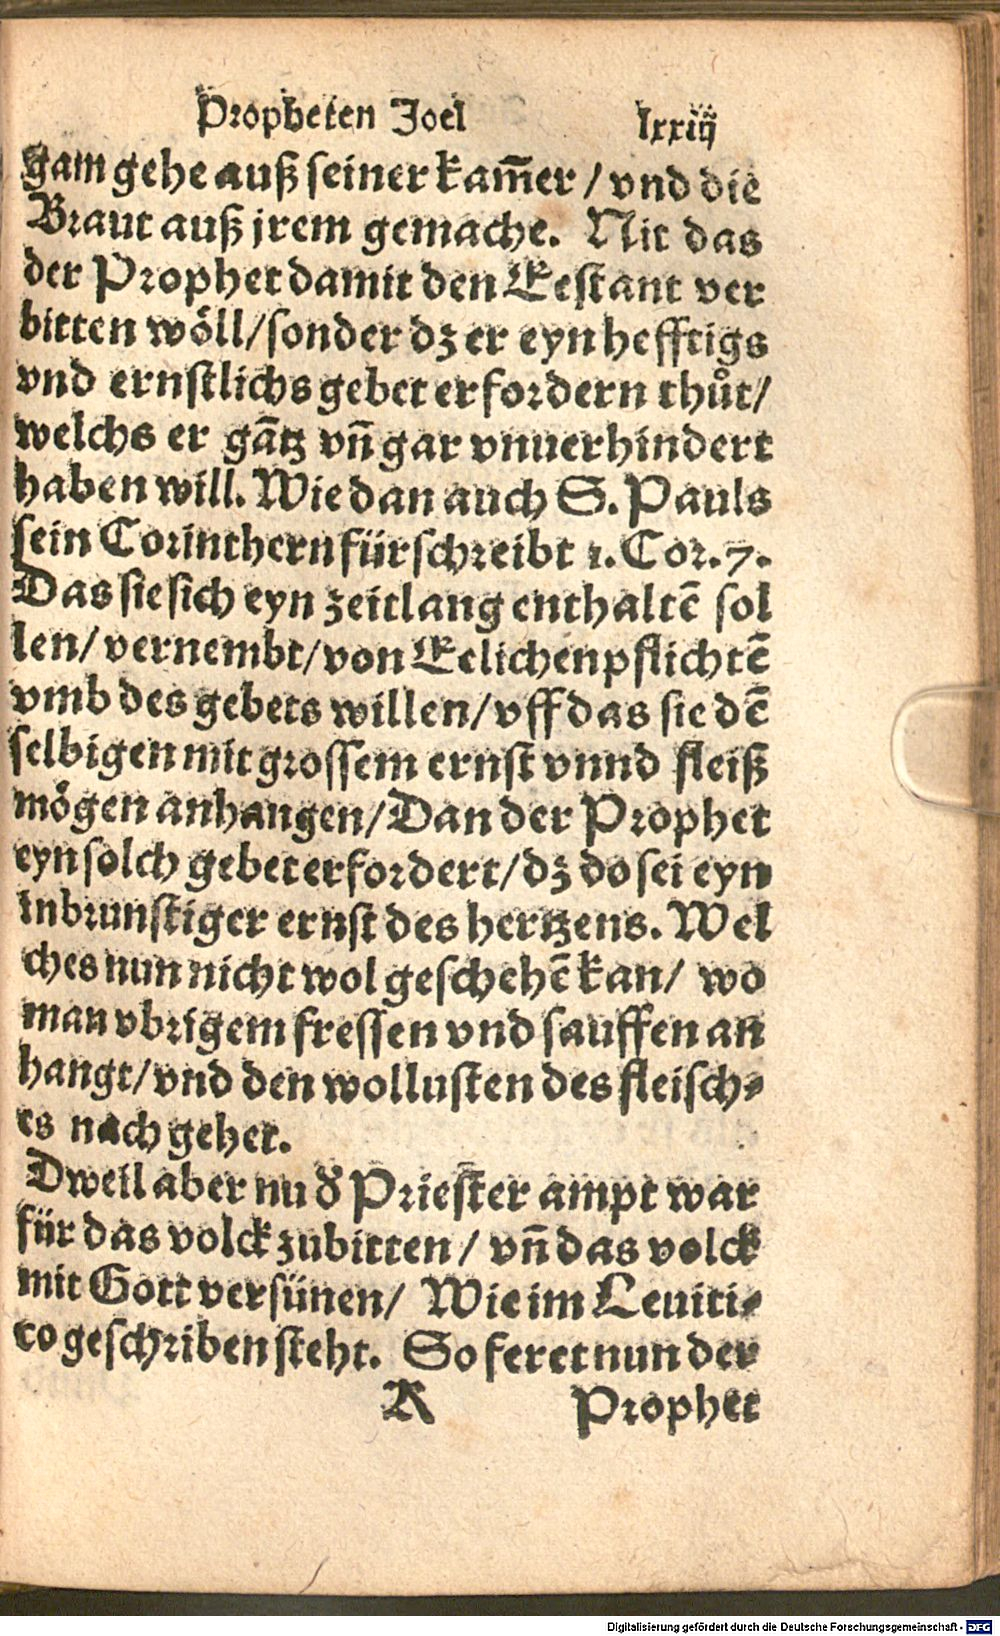 Propheten Joel lxxiij
gam gehe auß seiner kam̄er / vnd die
Braut auß jrem gemache. Nit das
der Prophet damit den Eestant ver
bitten wöll/sonder dz er eyn hefftigs
vnd ernstlichs gebet erfordern thůt/
welchs er gātz vn̄ gar vnuerhindert
haben will. Wie dan auch S. Pauls
sein Corinthern fürschreibt 1. Cor. 7.
Das sie sich eyn zeitlang enthaltē sol
len/ vernembt/von Eelichen pflichtē
vmb des gebets willen/vff das sie dē
selbigen mit grossem ernst vnnd fleiß
mögen anhangen/Dan der Prophet
eyn solch gebet erfordert/dz do sei eyn
inbrunstiger ernst des hertzens. Wel
ches nun nicht wol geschehē kan/ wo
man vbrigem fressen vnd sauffen an
hangt/vnd den wollusten des fleisch-
es nach gehet.
Dweil aber nu d̕ Priester ampt war
für das volck zubitten / vn̄ das volck
mit Gott versünen/ Wie im Leuiti-
co geschriben steht. So feret nun der
K Prophet
Digitalisierung gefördert durch die Deutsche Forschungsgemeinschaft - DFG